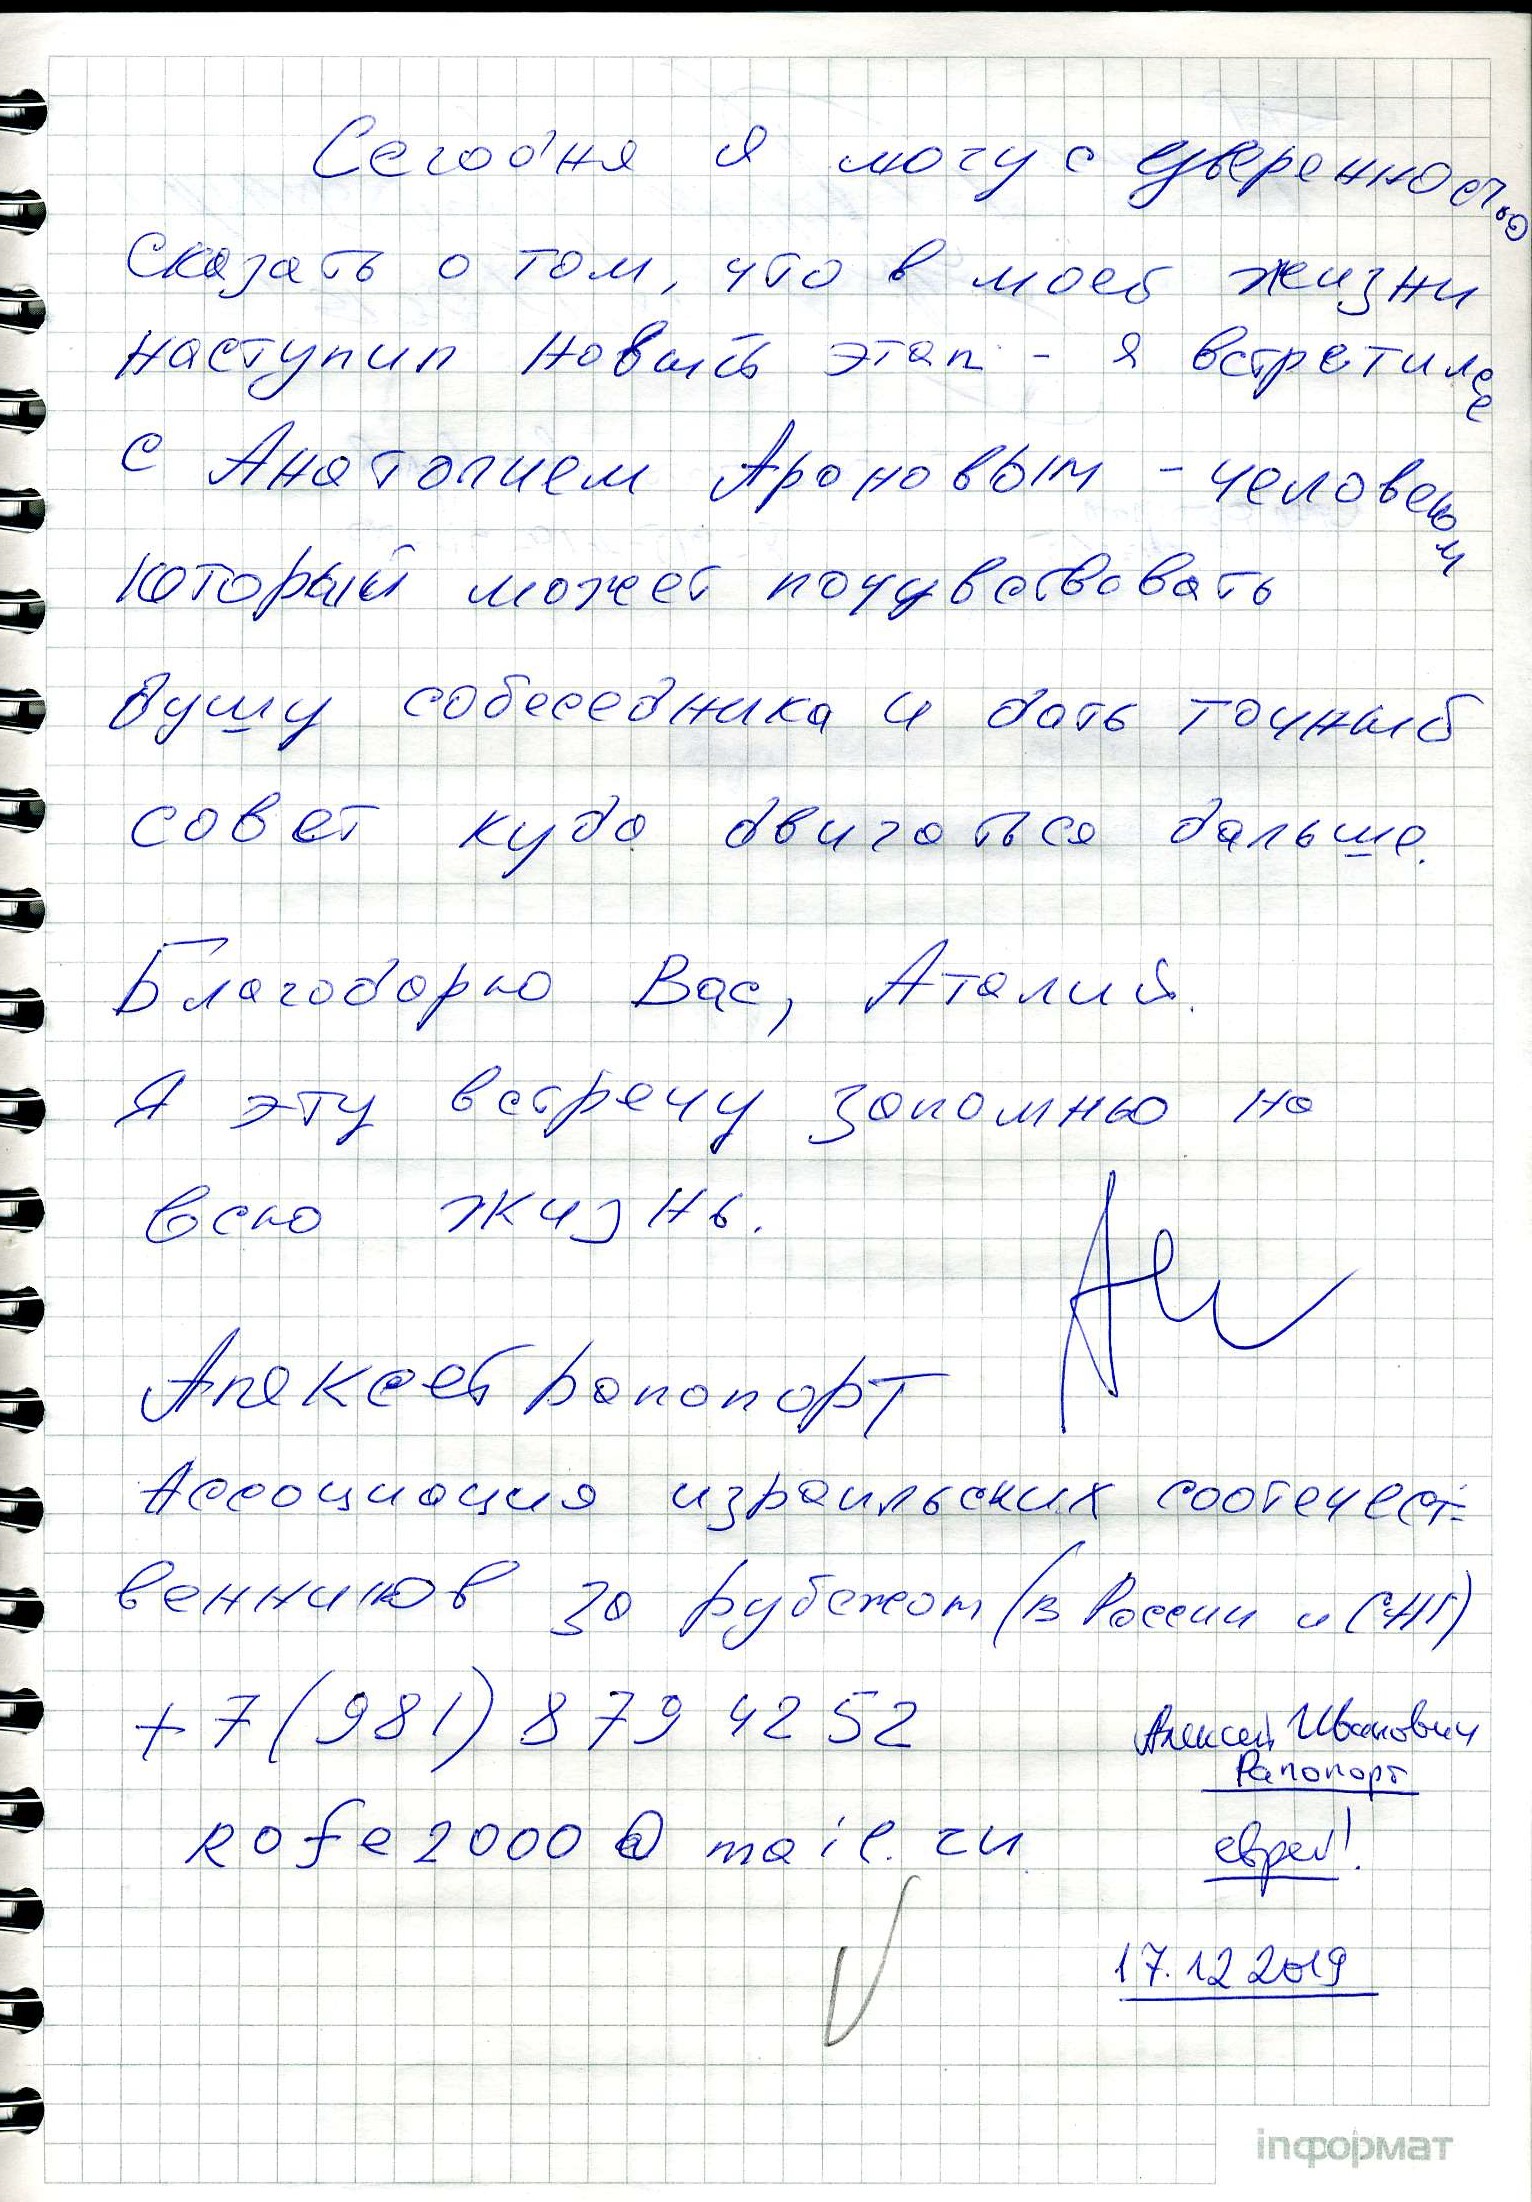 Сегодня я могу с уверенностью
сказать о том, что в моей жизни
наступил новый этап - я встретился
с Анатолием Ароновым - человеком
который может почувствовать
душу собеседника и дать точный
совет куда двигаться дальше.
Благодарю Вас, Аталий.
Я эту встречу запомню на
всю жизнь.
Алексей Рапопорт
Ассоциация израильских соотечест-
венников за рубежом (в России и СНГ)
+7(981) 879 4252
rofe2000@mail.ru
Алексей Иванович
Рапопорт
еврей!
17.12 2019
inформат